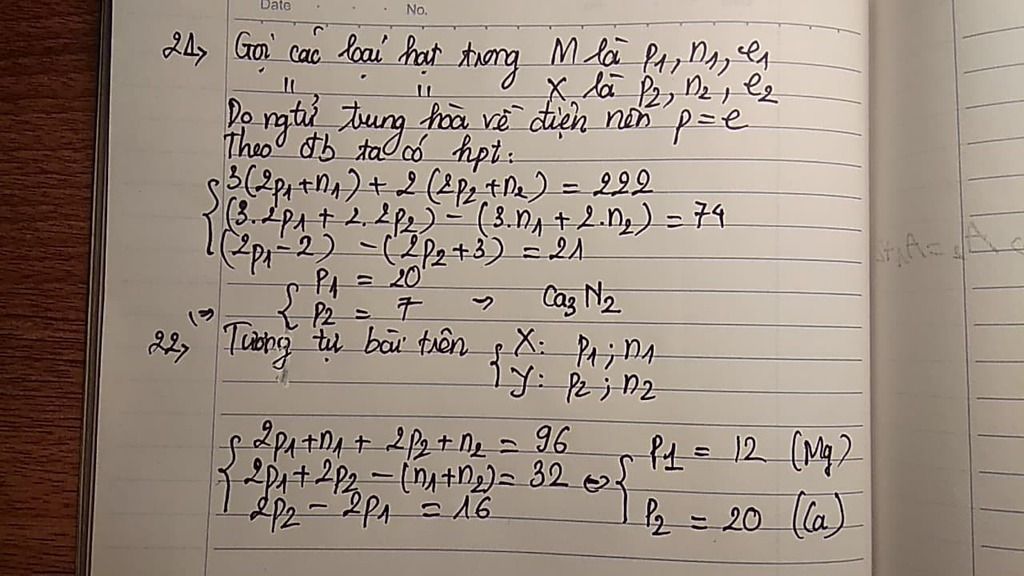 Date . . . No.
21, Gọi các loại hạt trong M là p1, n1, e1
" " X là p2, n2, e2
Do ngtử trung hoà về điện nên p = e
Theo đb ta có hpt:
3(2p1+n1) + 2(2p2+n2) = 222
(3.2p1 + 2.2p2) - (3.n1 + 2.n2) = 74
(2p1-2) - (2p2+3) = 21
(⇒ { p1 = 20
p2 = 7 ⇒ Ca3N2
22, Tương tự bài trên { X: p1; n1
Y: p2; n2
2p1+n1 + 2p2+n2 = 96
2p1+2p2 - (n1+n2) = 32 ⇔ { p1 = 12 (Mg)
2p2 - 2p1 = 16
p2 = 20 (Ca)